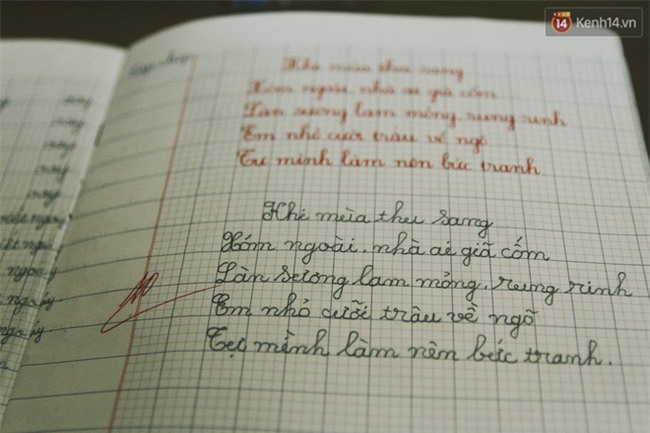 14 Kenh14.vn
Khi mùa thu sang
Xóm ngoài, nhà ai giã cốm
Làn sương lam mỏng rung rinh
Em nhỏ cưỡi trâu về ngõ
Tự mình làm nên bức tranh.
Khi mùa thu sang
Xóm ngoài, nhà ai giã cốm
Làn sương lam mỏng, rung rinh
Em nhỏ cưỡi trâu về ngõ
Tự mình làm nên bức tranh.
ngay
ngay
ngay